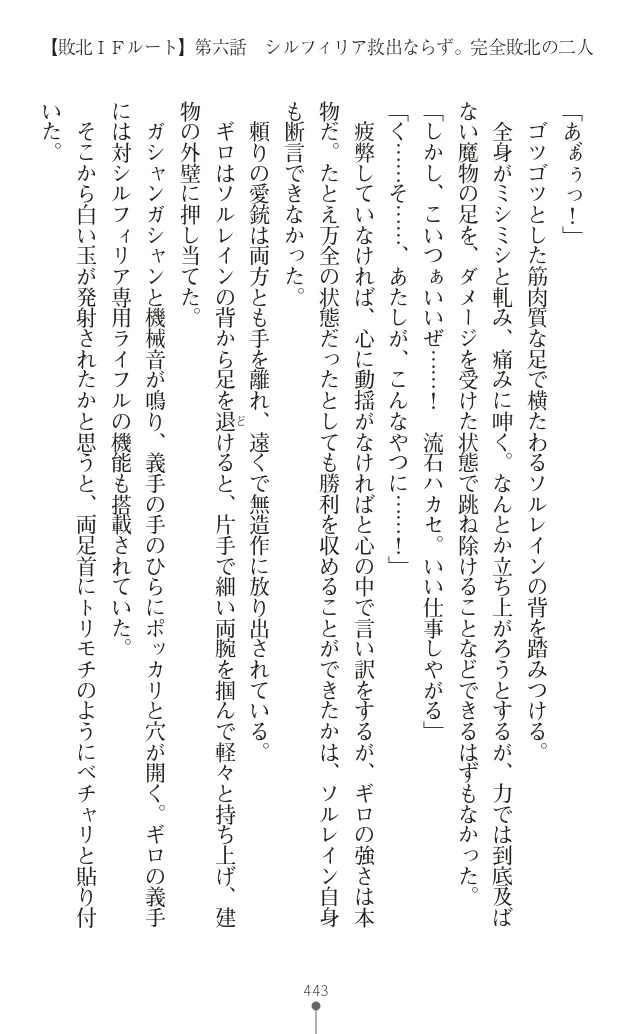 【敗北ＩＦルート】第六話　シルフィリア救出ならず。完全敗北の二人
「あぁぅっ！」
　ゴツゴツとした筋肉質な足で横たわるソルレインの背を踏みつける。
　全身がミシミシと軋み、痛みに呻く。なんとか立ち上がろうとするが、力では到底及ば
ない魔物の足を、ダメージを受けた状態で跳ね除けることなどできるはずもなかった。
「しかし、こいつぁいいぜ……！　流石ハカセ。いい仕事しやがる」
「く……そ……、あたしが、こんなやつに……！」
　疲弊していなければ、心に動揺がなければと心の中で言い訳をするが、ギロの強さは本
物だ。たとえ万全の状態だったとしても勝利を収めることができたかは、ソルレイン自身
も断言できなかった。
　頼りの愛銃は両方とも手を離れ、遠くで無造作に放り出されている。
　ギロはソルレインの背から足を退けると、片手で細い両腕を掴んで軽々と持ち上げ、建
物の外壁に押し当てた。
　ガシャンガシャンと機械音が鳴り、義手の手のひらにポッカリと穴が開く。ギロの義手
には対シルフィリア専用ライフルの機能も搭載されていた。
　そこから白い玉が発射されたかと思うと、両足首にトリモチのようにベチャリと貼り付
いた。
443